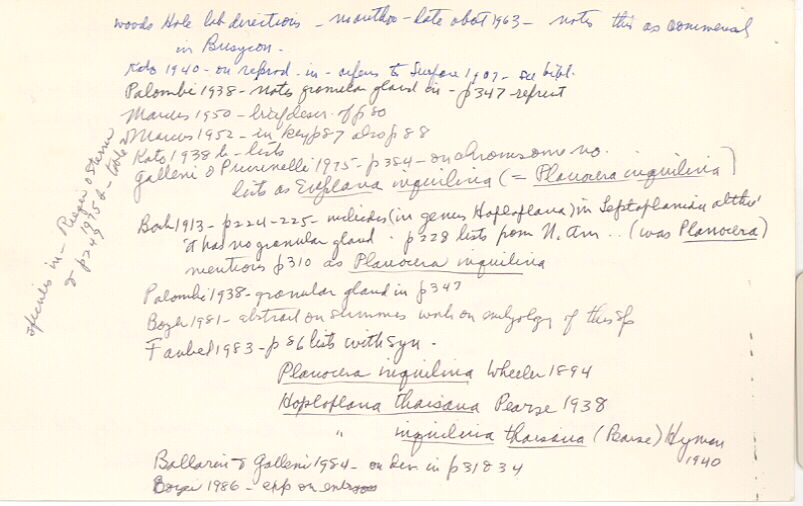 Woods Hole lab directions - no author - late abot 1963 - notes this as commensal
in Busycon.
Kato 1940 - on reprod. in - refers to Surface 1907 - see bibl.
Palombi 1938 - notes granular gland in - p347 - reprint
Marcus 1950 - brief descr. of p80
Marcus 1952 - in key p87 also p88
Kato 1938 b - lists
Galleni & Puccinelli 1975 - p384 - on chromosome no.
lists as Euplana inquilina (= Planocera inquilina)
Bock 1913 - p224-225 - includes (in genus Hoploplana) in Leptoplanidae altho'
it has no granular gland. p228 lists from N. Am .. (was Planocera)
mentions p310 as Planocera inquilina
Palombi 1938 - granular gland in p347
Boyer 1981 - abstract on summer work on embryology of this sp
Faubel 1983 - p86 lists with syn.
Planocera inquilina Wheeler 1894
Hoploplana thaisana Pearse 1938
" inquilina thaisana (Pearse) Hyman
1940
Ballarin & Galleni 1984 - on in p31 & 34
1986 - exp on
species in - Rieger & Sterrer
& p249 1975 b - table